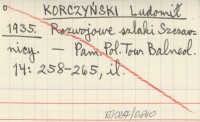 KORCZYŃSKI Ludomił
1935. Rozwojowe szlaki Szczaw-
nicy. — Pam. Pol. Tow. Balneol.
14: 258-265, il.